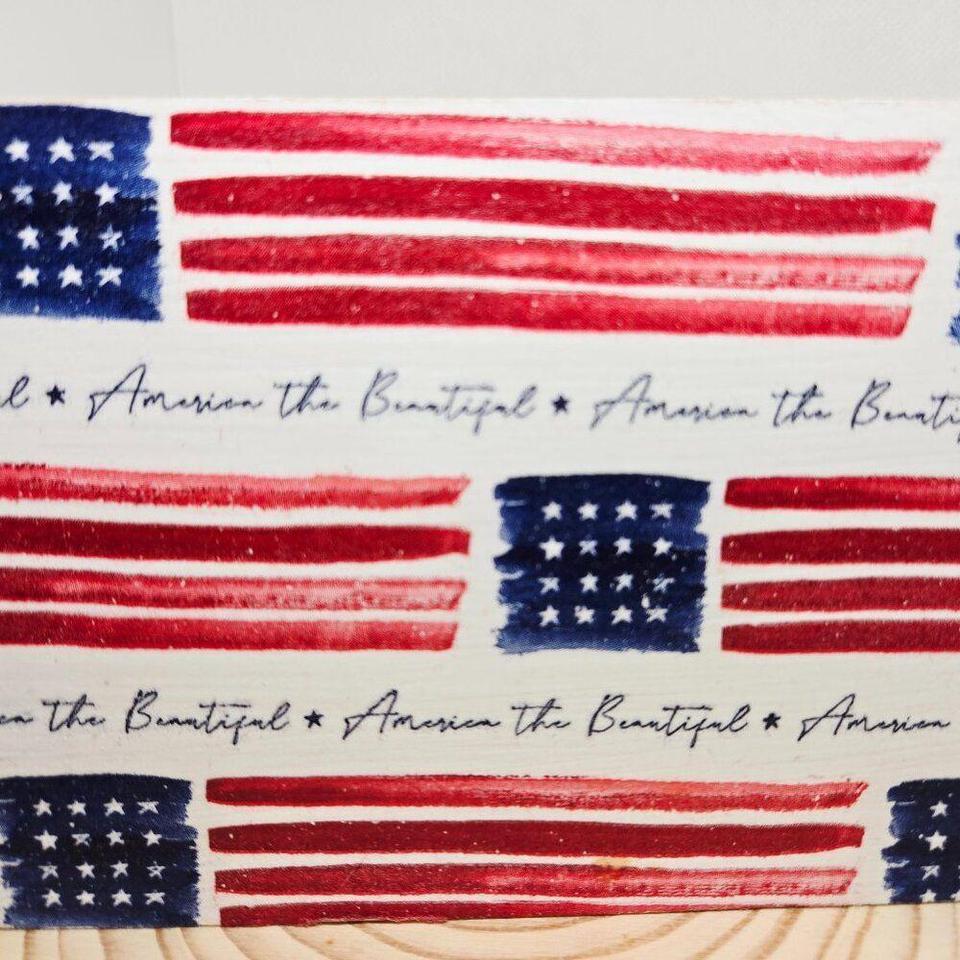 l ★ America the Beautiful ★ America the Beauti
ca the Beautiful ★ America the Beautiful ★ America